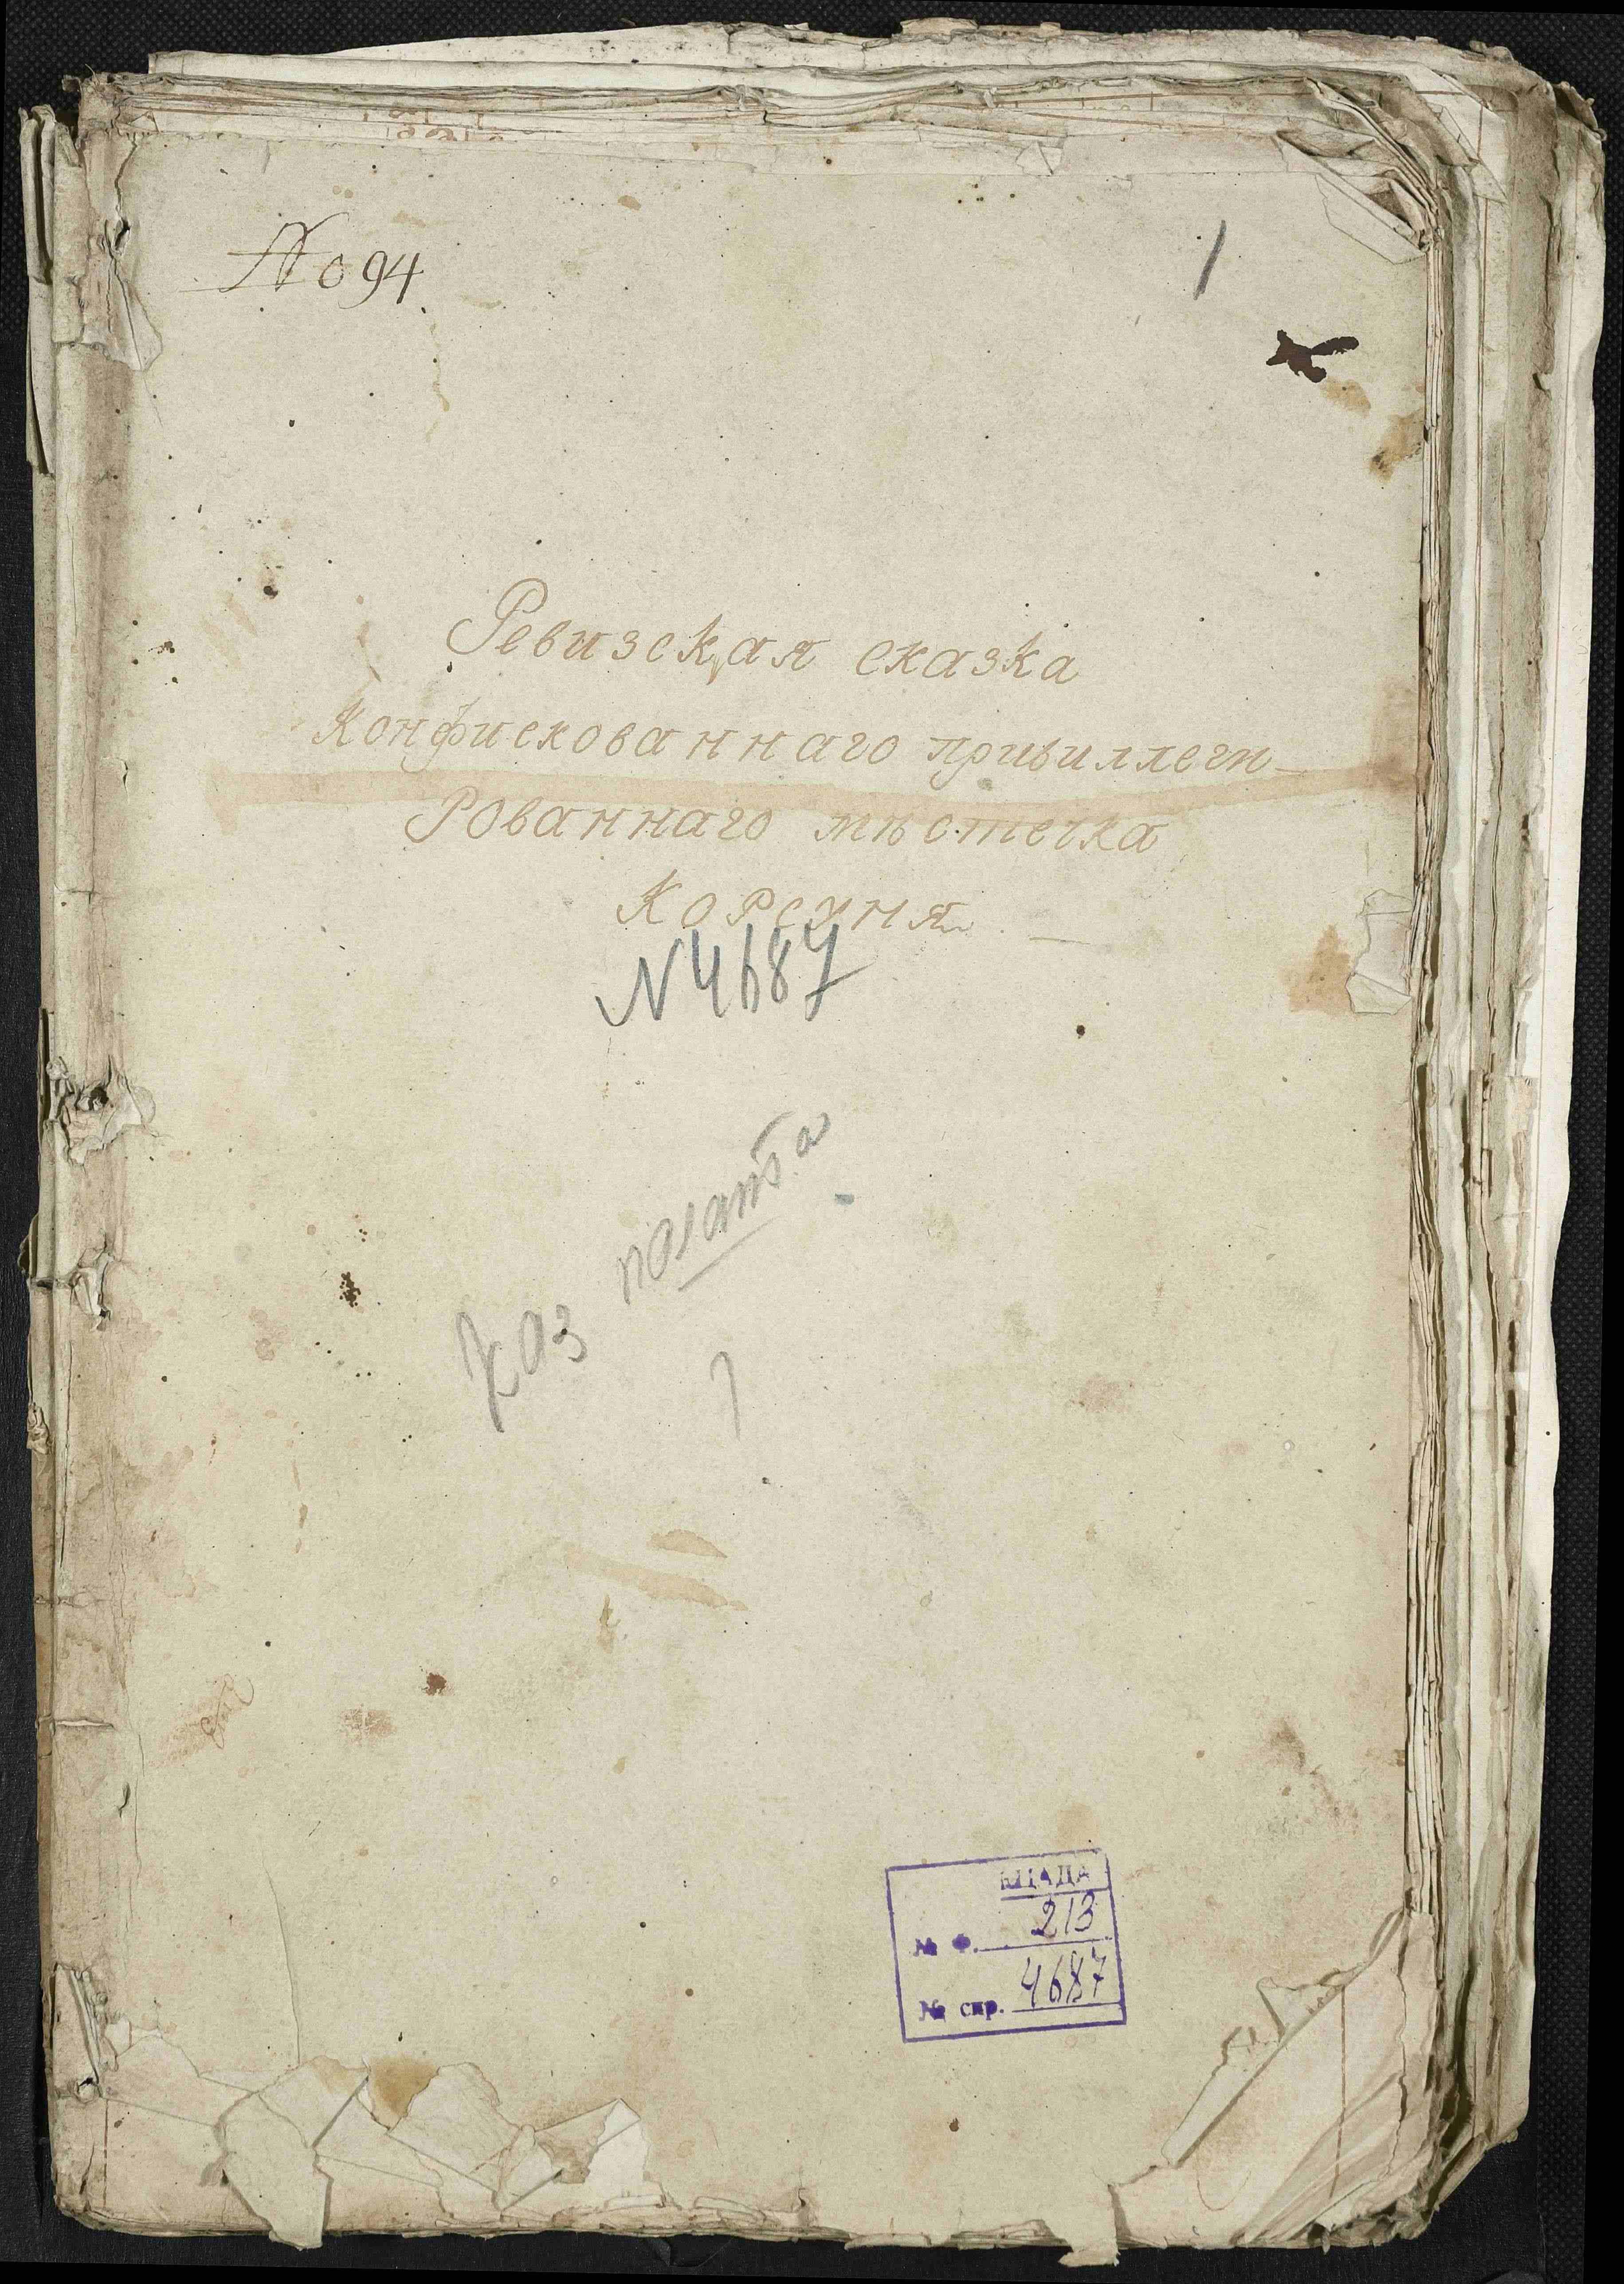 No 94
1
Ревизская сказка
Конфискованнаго привиллеги-
рованнаго мѣстечка
Корсуня.
N4687
каз палата
КЦАДА
№ Ф. 213
№ спр. 4687